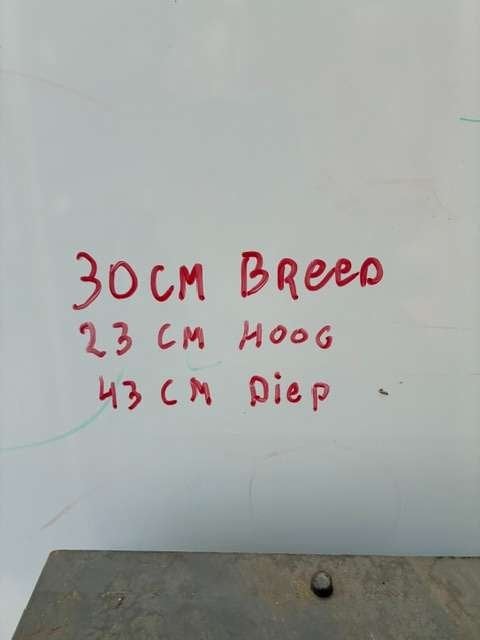 30CM BReeD
23 CM HOOG
43 CM Diep